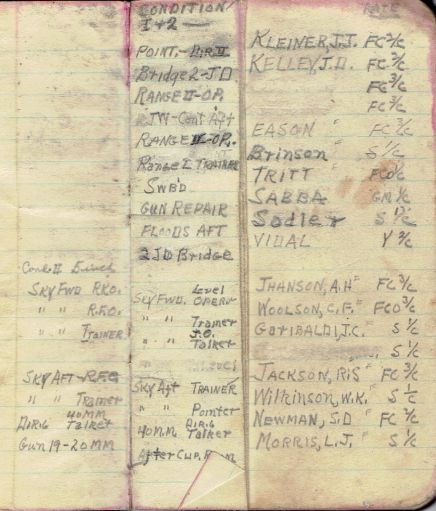 CONDITION RATE
I+2
POINT.-DIR.II KLEINER,J.J. FC 3/c
Bridge 2-JD KELLEY,J.D. FC 3/c
RANGE II-OP. FC 3/c
FC 3/c
RANGE -OP. EASON " FC 3/c
Range I TRAINER Brinson " S 1/c
SWB'D TRITT FCO/c
GUN REPAIR SABBA GM 1/c
FLOODS AFT Sadler S 1/c
2JD Bridge VIDAL Y 2/c
Cond II 5 inch
SKY FWD R.K.O. Level JHANSON,A.H " FC 3/c
SKY FWD. OPERTR
" " R.F.O. " " Tramer WOOLSON,C.F. " FCO 3/c
" " TRAINER " " Talker GARIBALDI,J.C. " S 1/c
S 1/c
SKY AFT R.F.O SKY Aft TRAINER JACKSON,R.S " FC 3/c
" " Tramer " " Pointer Wilkinson,W.K. " S 1/c
40MM DIR.6 Talker 40MM DIR.6 Talker NEWMAN,S.D " FC 3/c
Gun 19-20MM MORRIS,L.J. " S 1/c
After